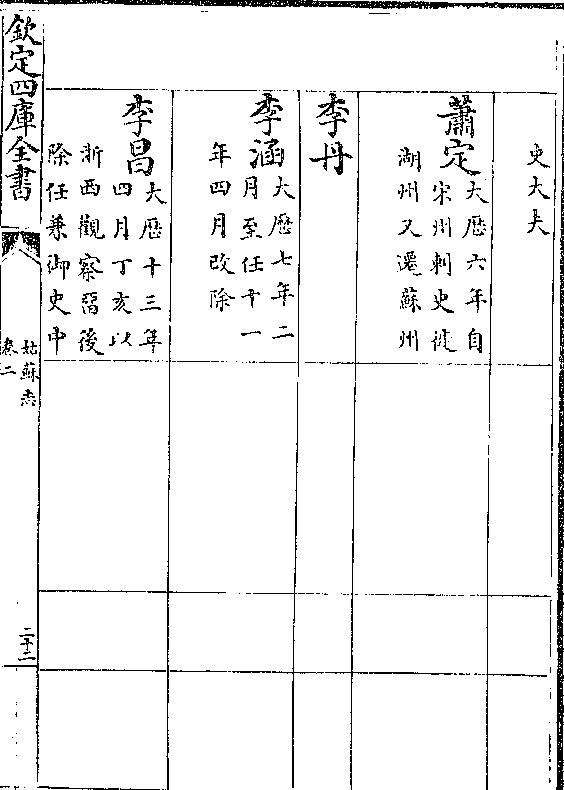 史大夫
蕭定
大歴六年自
宋州刺史徙
湖州又遷蘇州
李丹
李涵
大歴七年二
月至任十一
年四月改除
李昌
大歴十三年
四月丁亥以
浙西觀察留後
除任兼御史中
欽定四庫全書
姑蘇志
卷二
二十二